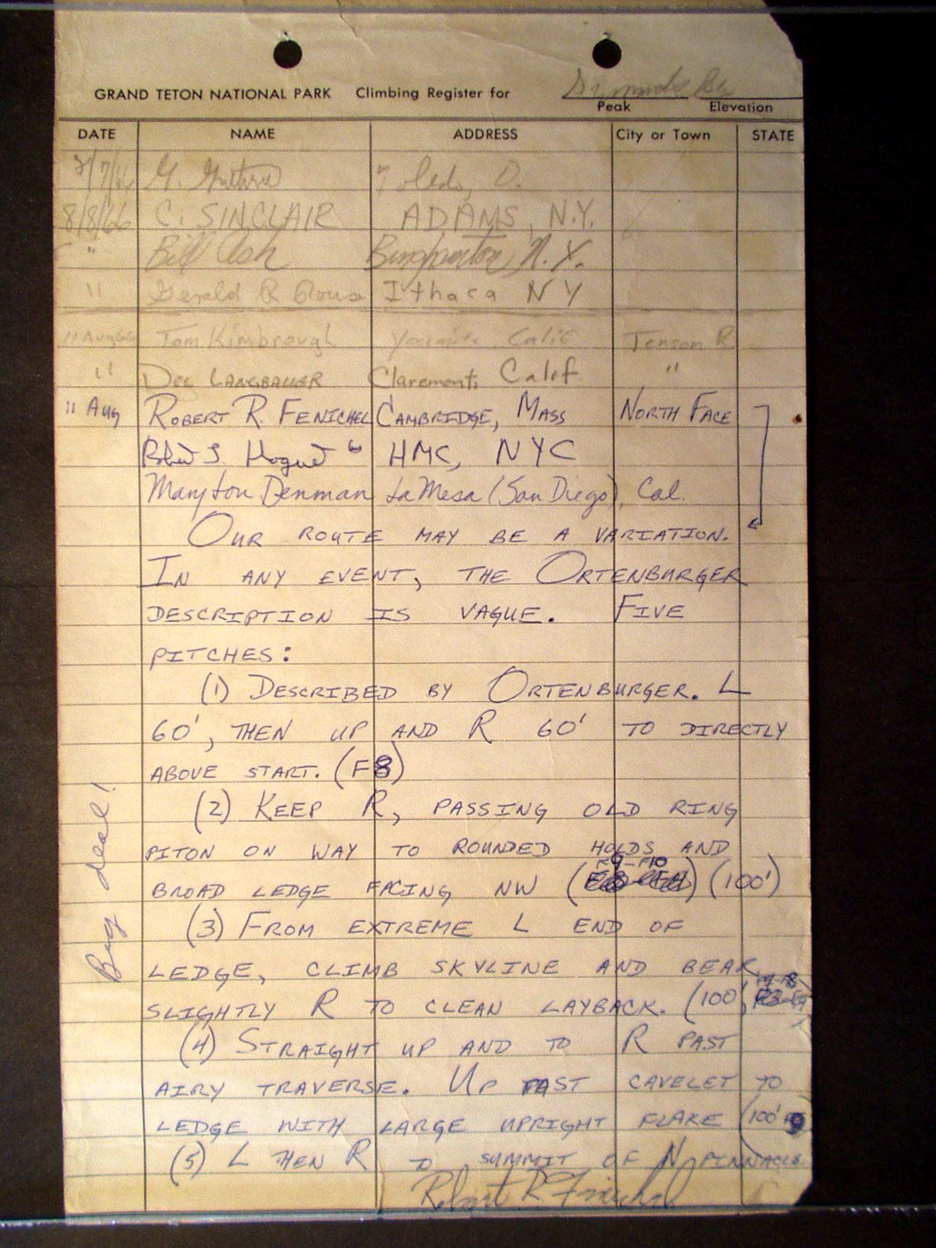 GRAND TETON NATIONAL PARK Climbing Register for
Peak Elevation
DATE NAME ADDRESS City or Town STATE
G. Guthrie Toledo, O.
8/8/66 C. SINCLAIR ADAMS, N.Y.
" Bill Ash Binghamton, N.Y.
" Gerald R Rouse Ithaca NY
11 Aug 66 Tom Kimbrough Yosemite Calif Jensen R
" DOC LANGBAUER Claremont, Calif "
11 Aug ROBERT R. FENICHEL CAMBRIDGE, MASS NORTH FACE
HMC, NYC
Mary Lou Denman La Mesa (San Diego), Cal.
OUR ROUTE MAY BE A VARIATION.
IN ANY EVENT, THE ORTENBURGER
DESCRIPTION IS VAGUE. FIVE
PITCHES:
(1) DESCRIBED BY ORTENBURGER. L
60', THEN UP AND R 60' TO DIRECTLY
ABOVE START. (F8)
(2) KEEP R, PASSING OLD RING
PITON ON WAY TO ROUNDED HOLDS AND
F9-F10
BROAD LEDGE FACING NW (100')
(3) FROM EXTREME L END OF
LEDGE, CLIMB SKYLINE AND BEAR
SLIGHTLY R TO CLEAN LAYBACK. (100'
(4) STRAIGHT UP AND TO R PAST
AIRY TRAVERSE. UP PAST CAVELET TO
LEDGE WITH LARGE UPRIGHT FLAKE (100'
(5) L THEN R TO SUMMIT OF N PINNACLE
Robert R Fenichel
Big deal!